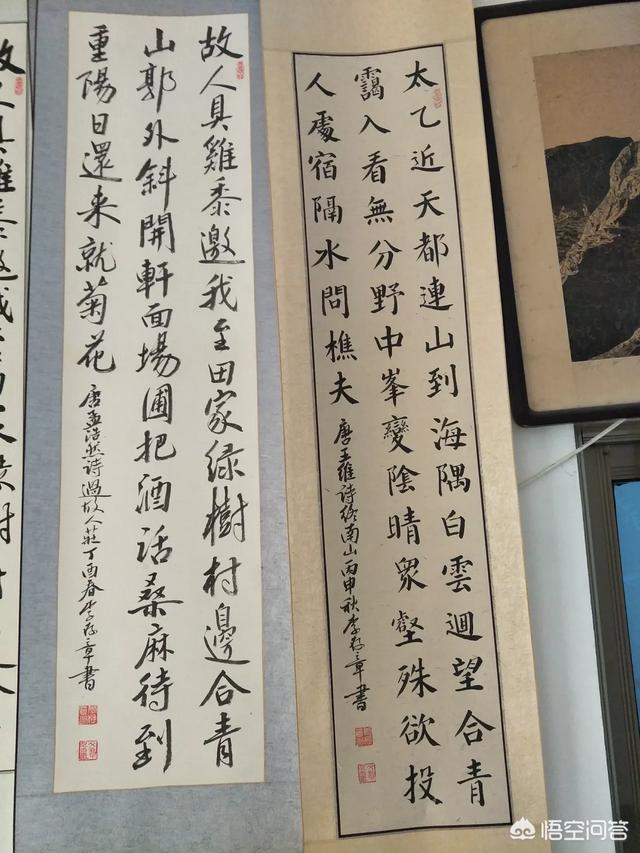 太乙近天都連山到海隅白雲迴望合青
靄入看無分野中峯變陰晴衆壑殊欲投
人處宿隔水問樵夫
唐王維詩終南山丙申秋李存章書
故人具雞黍邀我至田家绿樹村邊合青
山郭外斜開軒面場圃把酒話桑麻待到
重陽日還来就菊花
唐孟浩然詩過故人莊丁酉春李存章書
悟空问答